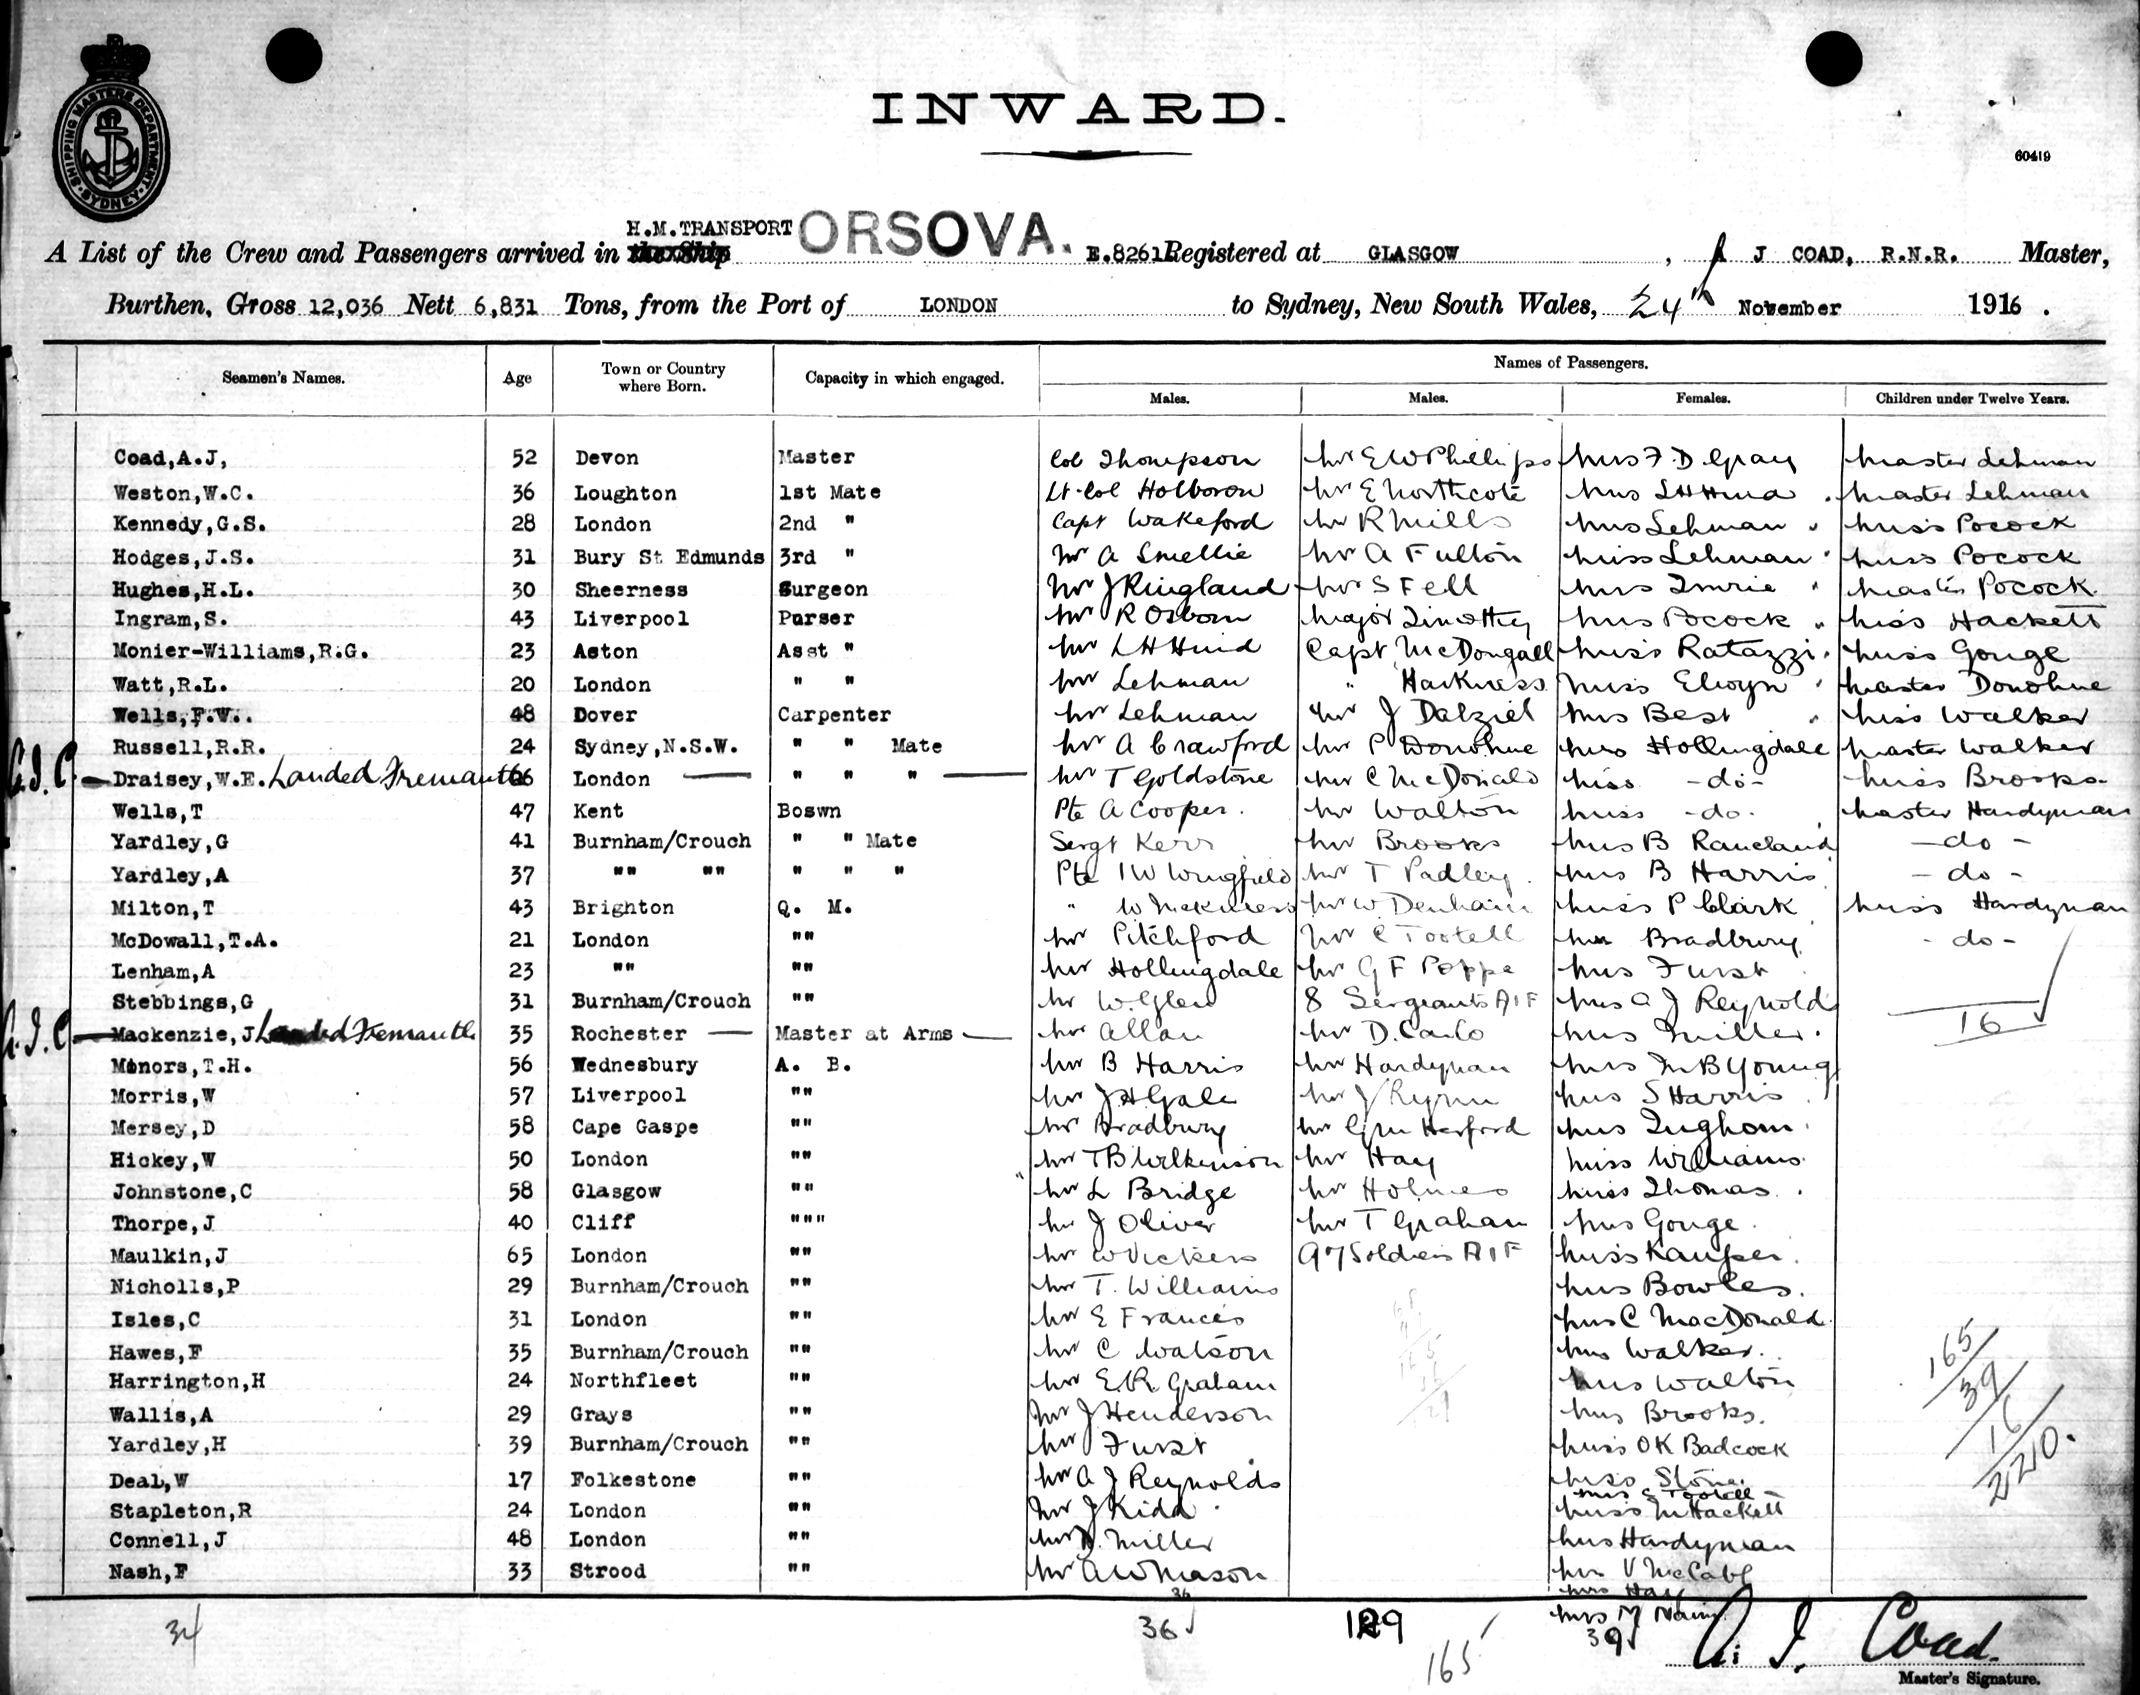 SHIPPING MASTERS DEPARTMENT
SYDNEY
INWARD.
60419
H.M.TRANSPORT ORSOVA.
A List of the Crew and Passengers arrived in the Ship E.8261 Registered at GLASGOW, A J COAD, R.N.R. Master,
Burthen, Gross 12,036 Nett 6,831 Tons, from the Port of LONDON to Sydney, New South Wales, 24th November 1916.
Names of Passengers.
Seamen's Names. Age Town or Country where Born. Capacity in which engaged. Males. Males. Females. Children under Twelve Years.
Coad,A.J, 52 Devon Master Col Thompson Mr E W Phillips Mrs F.D Gray Master Lehman
Weston,W.C. 36 Loughton 1st Mate Lt-Col Holborow Mr E Northcote Mrs Master Lehman
Kennedy,G.S. 28 London 2nd " Capt Wakeford Mr R Mills Mrs Lehman " Miss Pocock
Hodges,J.S. 31 Bury St Edmunds 3rd " Mr A Smellie Mr A Fulton Miss Lehman " Miss Pocock
Hughes,H.L. 30 Sheerness Surgeon Mr J Ringland Mr S Fell Mrs Imrie " Master Pocock
Ingram,S. 43 Liverpool Purser Mr R Osborn Major Timothy Mrs Pocock " Miss Hackett
Monier-Williams,R.G. 23 Aston Asst " Mr L H Hind Capt McDougall Miss Ratazzi. Miss Gouge
Watt,R.L. 20 London " " Mr Lehman " Harkness Miss Elwyn " Master Donohue
Wells,F.W.. 48 Dover Carpenter Mr Lehman Mr J Dalziel Mrs Best " Miss Walker
Russell,R.R. 24 Sydney,N.S.W. " " Mate Mr A Crawford Mr P Donohue Mrs Hollingdale Master Walker
A.J.C. Draisey,W.E. Landed Fremantle 26 London " " " Mr T Goldstone Mr C McDonald Miss -do- Miss Brooks
Wells,T 47 Kent Boswn Pte A Cooper. Mr Walton Miss -do- Master Hardyman
Yardley,G 41 Burnham/Crouch " " Mate Sergt Kerr Mr Brooks Mrs B -do-
Yardley,A 37 "" "" " " " Pte Wingfield Mr T Padley. Mrs B Harris -do-
Milton,T 43 Brighton Q. M. " W Mr W. Denham Miss P Clark Miss Hardyman
McDowall,T.A. 21 London "" Mr Pitchford Mr C Tootell Mrs Bradbury -do-
Lenham,A 23 "" "" Mr Hollingdale Mr G F Poppe Mrs Furst
Stebbings,G 31 Burnham/Crouch "" Mr W. Glen 8 Sergeants A I F Mrs A J Reynolds
16
A.J.C. Mackenzie,J Landed Fremantle 35 Rochester Master at Arms Mr Allan Mr D. Carlo Mrs Miller.
Minors,T.H. 56 Wednesbury A. B. Mr B Harris Mr Hardyman Mrs M B Young
Morris,W 57 Liverpool "" Mr J H Gale Mr J Flynn Mrs S Harris
Mersey,D 58 Cape Gaspe "" Mr Bradbury Mr G M Harford Mrs Ingham.
Hickey,W 50 London "" Mr T B Wilkinson Mr Hay Miss Williams
Johnstone,C 58 Glasgow "" Mr L Bridge Mr Holmes Miss Thomas.
Thorpe,J 40 Cliff """ Mr J Oliver Mr T Graham Mrs Gouge.
Maulkin,J 65 London "" Mr W Vickers 97 Soldiers A I F Miss Kauper.
Nicholls,P 29 Burnham/Crouch "" Mr T. Williams Mrs Bowles.
Isles,C 31 London "" Mr E Francis Mrs C MacDonald.
Hawes,F 35 Burnham/Crouch "" Mr C Watson Mrs Walker.
Harrington,H 24 Northfleet "" Mr E.R. Graham Mrs Walton
Wallis,A 29 Grays "" Mr J Henderson Mrs Brooks.
Yardley,H 39 Burnham/Crouch "" Mr Furst Miss O K Badcock
Deal,W 17 Folkestone "" Mr A J Reynolds Miss Stone.
Mrs C Tootell
Stapleton,R 24 London "" Mr J Kidd Miss M Hackett
Connell,J 48 London "" Mr D. Miller Mrs Hardyman
Nash,F 33 Strood "" Mr A W Mason Mrs V McCabe
Mrs Hay
Mrs M Nairn
165
39
16
220.
34 36 129 39
165
A. J. Coad.
Master's Signature.